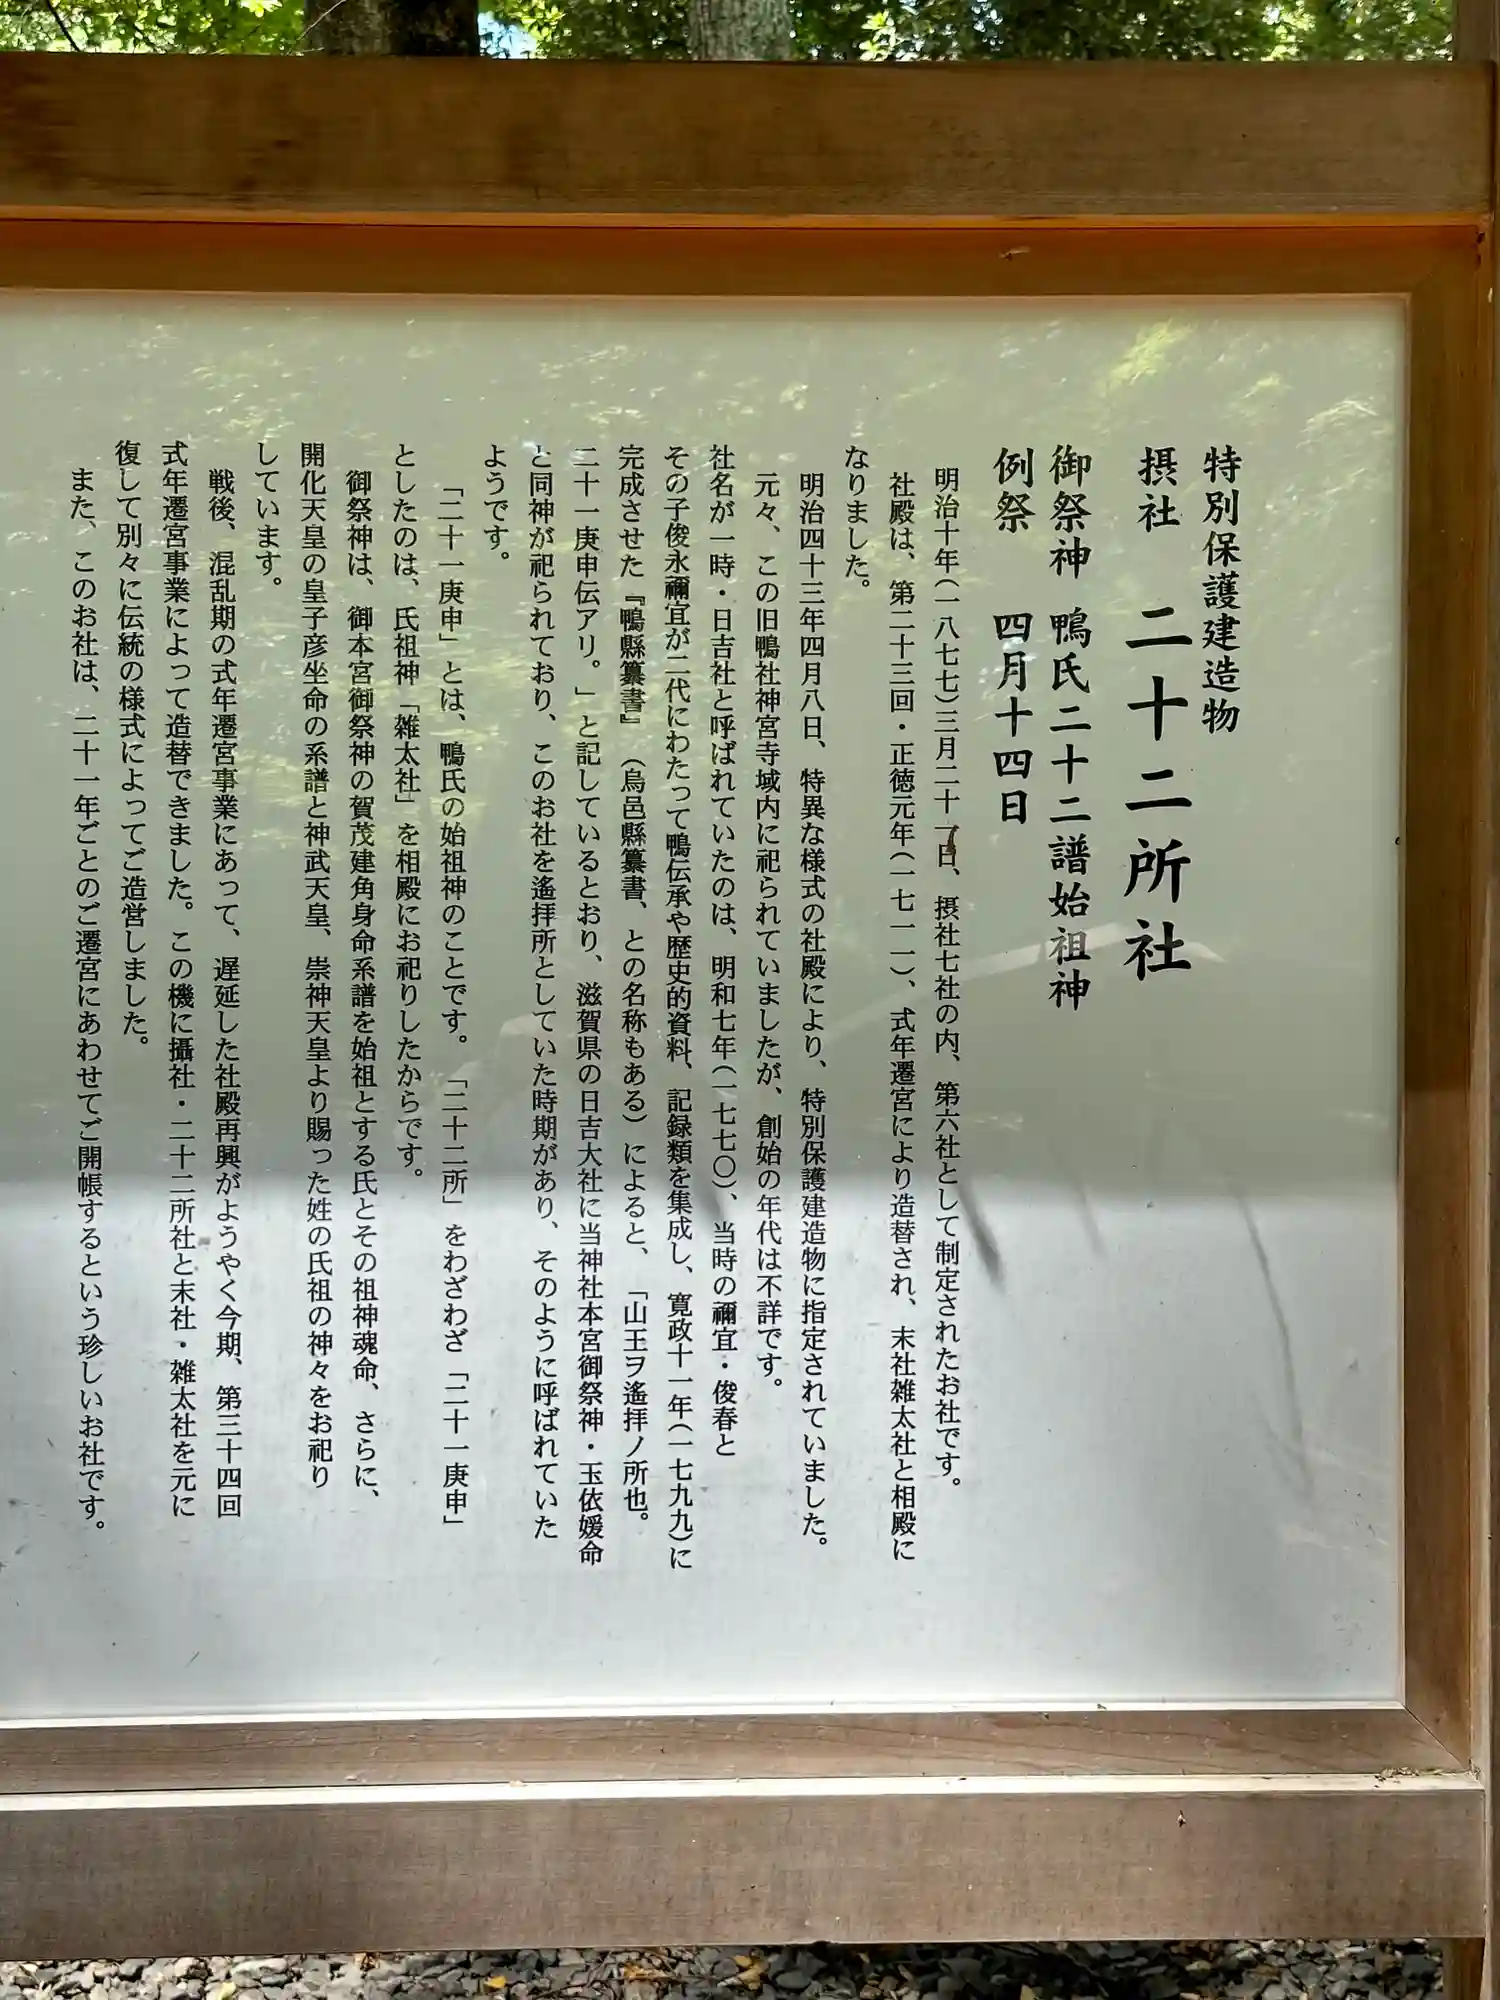 特別保護建造物
摂社　二十二所社
御祭神　鴨氏二十二譜始祖神
例祭　四月十四日
明治十年(一八七七)三月二十一日、摂社七社の内、第六社として制定されたお社です。
社殿は、第二十三回・正徳元年(一七一一)、式年遷宮により造替され、末社雑太社と相殿に
なりました。
明治四十三年四月八日、特異な様式の社殿により、特別保護建造物に指定されていました。
元々、この旧鴨社神宮寺域内に祀られていましたが、創始の年代は不詳です。
社名が一時・日吉社と呼ばれていたのは、明和七年(一七七〇)、当時の禰宜・俊春と
その子俊永禰宜が二代にわたって鴨伝承や歴史的資料、記録類を集成し、寛政十一年(一七九九)に
完成させた『鴨縣纂書』(烏邑縣纂書、との名称もある)によると、「山王ヲ遙拝ノ所也。
二十一庚申伝アリ。」と記しているとおり、滋賀県の日吉大社に当神社本宮御祭神・玉依媛命
と同神が祀られており、このお社を遙拝所としていた時期があり、そのように呼ばれていた
ようです。
「二十一庚申」とは、鴨氏の始祖神のことです。「二十二所」をわざわざ「二十一庚申」
としたのは、氏祖神「雑太社」を相殿にお祀りしたからです。
御祭神は、御本宮御祭神の賀茂建角身命系譜を始祖とする氏とその祖神魂命、さらに、
開化天皇の皇子彦坐命の系譜と神武天皇、崇神天皇より賜った姓の氏祖の神々をお祀り
しています。
戦後、混乱期の式年遷宮事業にあって、遅延した社殿再興がようやく今期、第三十四回
式年遷宮事業によって造替できました。この機に攝社・二十二所社と末社・雑太社を元に
復して別々に伝統の様式によってご造営しました。
また、このお社は、二十一年ごとのご遷宮にあわせてご開帳するという珍しいお社です。